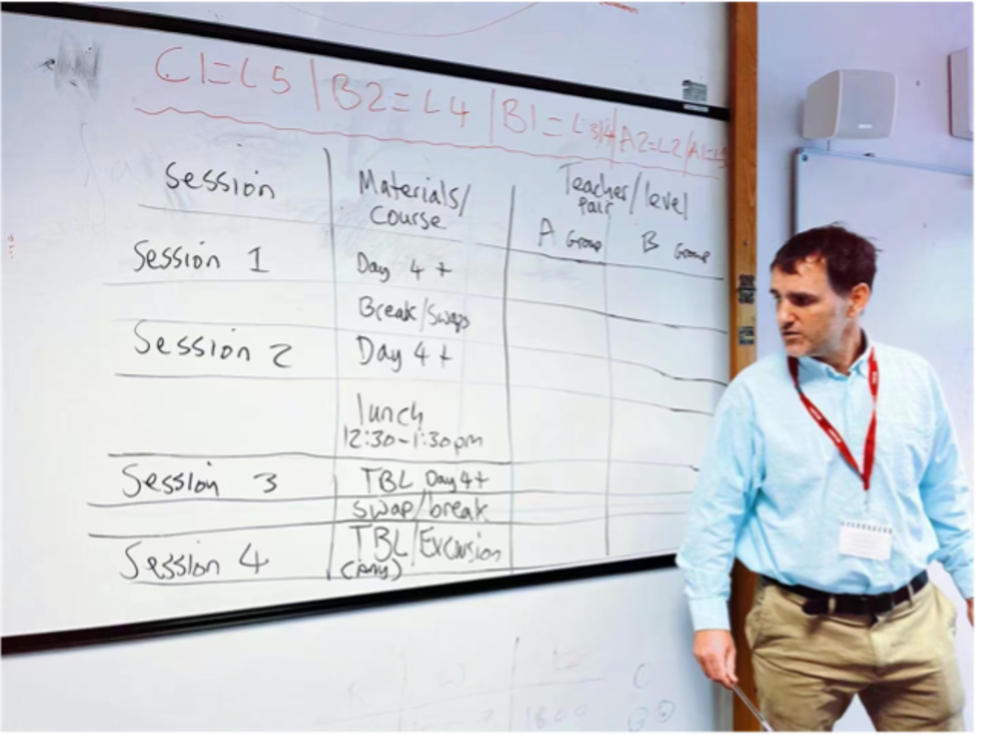 C1=L5 | B2=L4 | B1=L3/4 | A2=L2 | A1=
Session
Materials/
Course
Teacher/level
pair
A Group B Group
Session 1
Day 4+
Break/Swap
Session 2
Day 4+
lunch
12:30-1:30pm
Session 3
TBL Day 4+
swap/break
Session 4
TBL/Excursion
(Any)